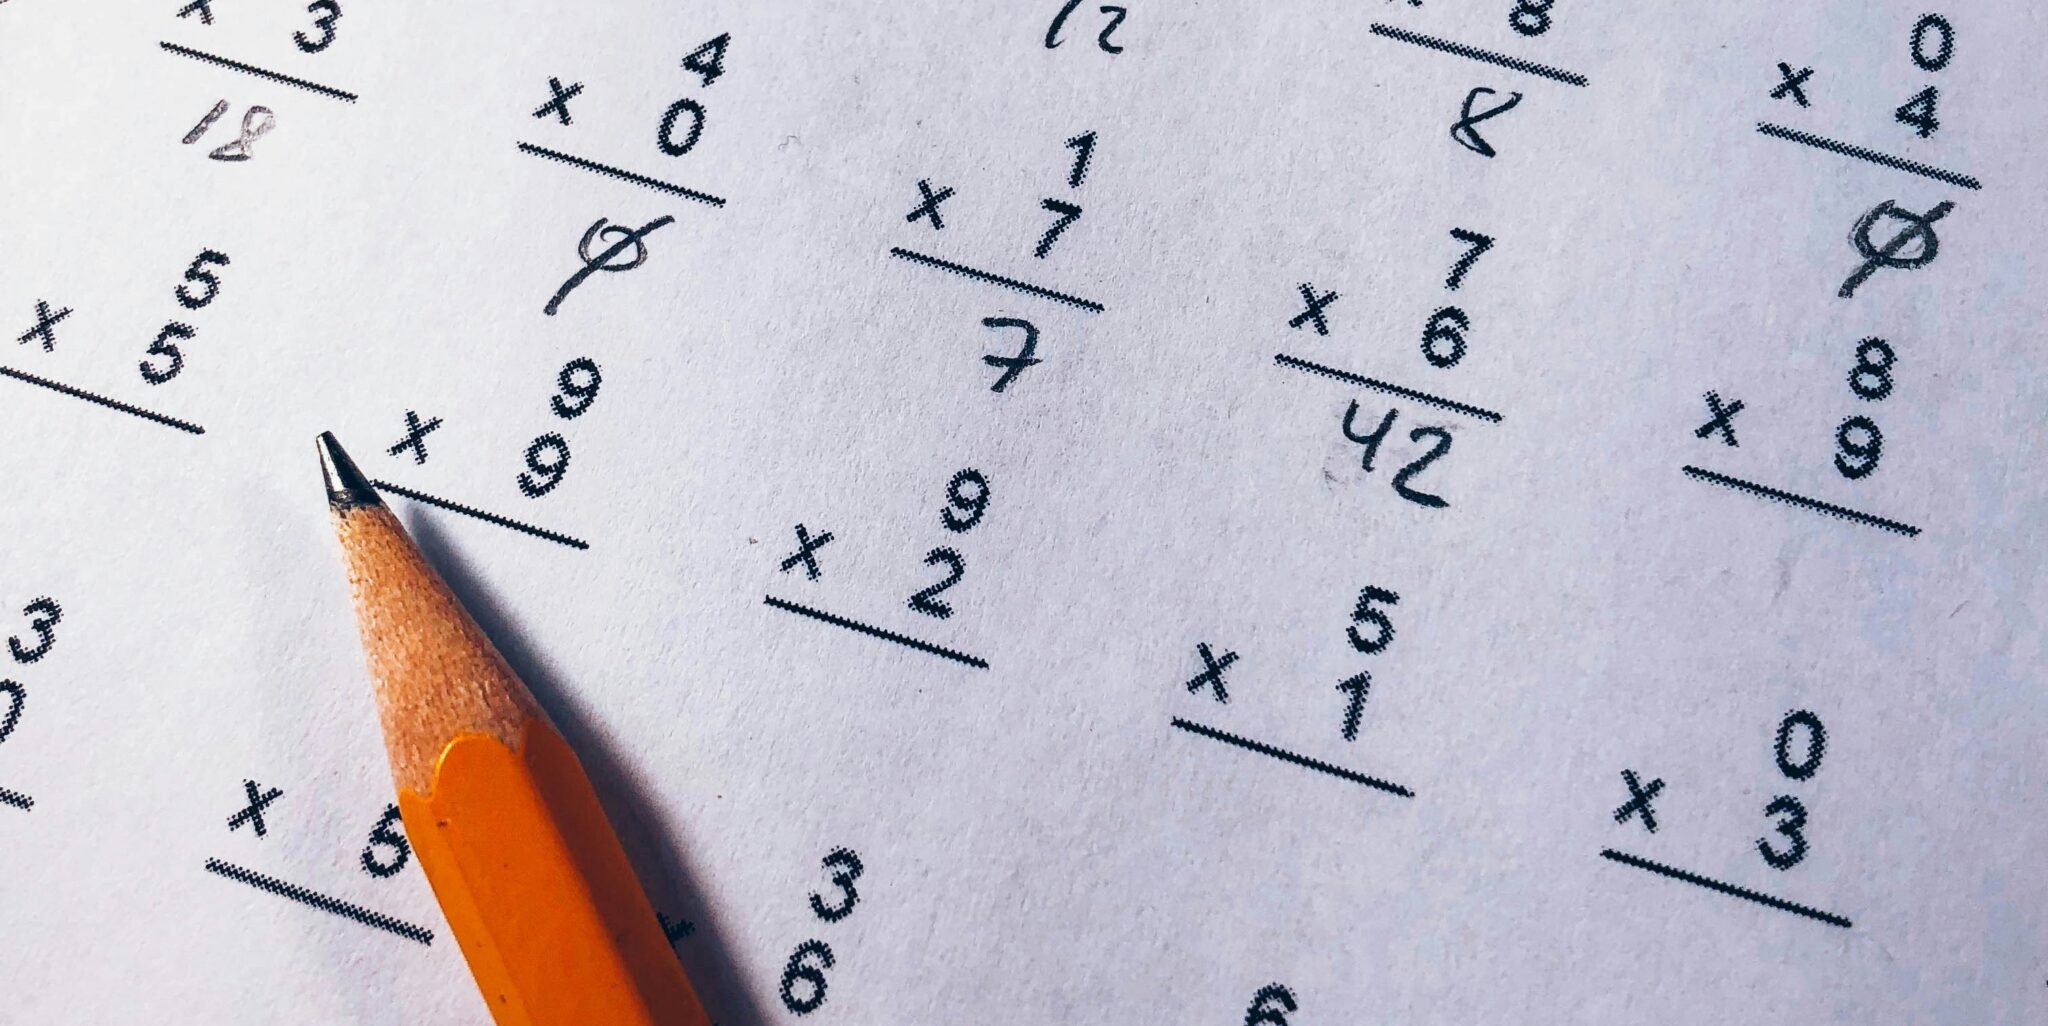 × 3
18
4
× 0
0
12
1
× 7
7
8
8
0
× 4
0
5
× 5
9
× 9
9
× 2
7
× 6
42
5
× 1
8
× 9
0
× 3
3
× 5
3
6
6